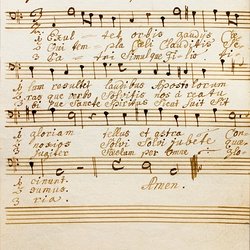 1 Exul - tet orbis gaudys Coe
2 Qui tem - pla Coeli Clauditis
3 Pa - tri Simulque Fi - lio
1 lum resultet laudibus Apostolorum
2 ras que verbo Solvitis nos a reatu
3 bi que Sancte Spiritus Sicut fuit Sit
1 gloriam tellus et astra Con
2 noxios Solvi Solvi jubete quae
3 jugiter Saeclum per omne glo
1 cinunt. Amen.
2 sumus.
3 ria.